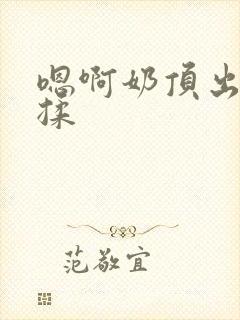 嗯啊奶頂出
揉
范敬宜